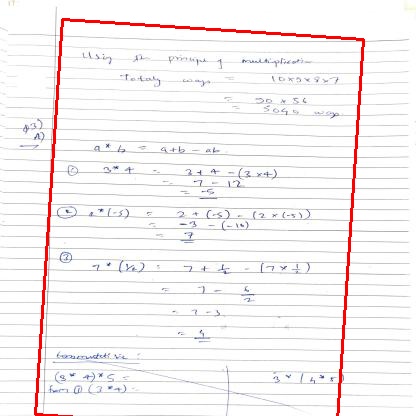 Using the principle of multiplication
Total ways = 10×9×8×7
= 90 × 56
= 5040 ways
Q3)
A)
a * b = a+b - ab
① 3 * 4 = 3 + 4 - (3 × 4)
= 7 - 12
= -5
② 2 * (-5) = 2 + (-5) - (2 × (-5))
= -3 - (-10)
= 7
③
7 * (1/2) = 7 + 1/2 - (7 × 1/2)
= 7 - 6/2
= 7 - 3
= 4
Commutative :
(3 * 4) * 5 = 3 * (4 * 5)
from ① (3 * 4) =